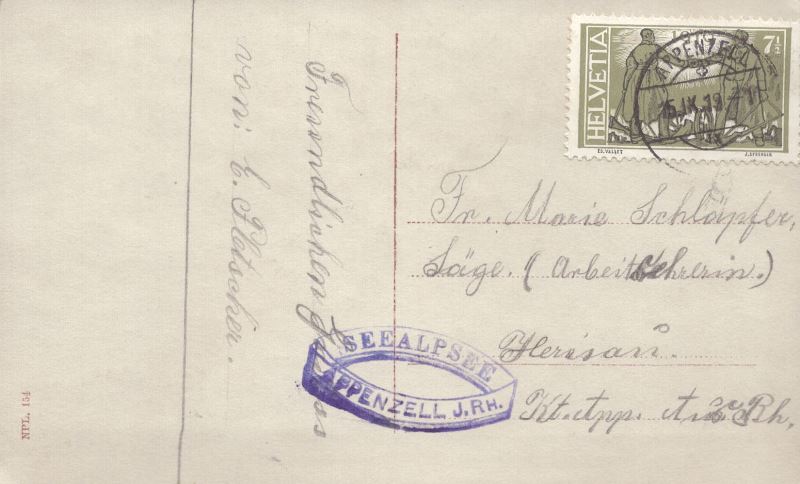 Freundlichen Gruss
von: E. Fletscher.
HELVETIA
1919
7½
ED. VALLET
J. SPRENGER
APPENZELL
15.IX.19
Fr. Marie Schläpfer,
Säge. (Arbeitslehrerin.)
Herisau.
Kt. App. Au. Rh.
SEEALPSEE
APPENZELL J. RH.
NPL. 154